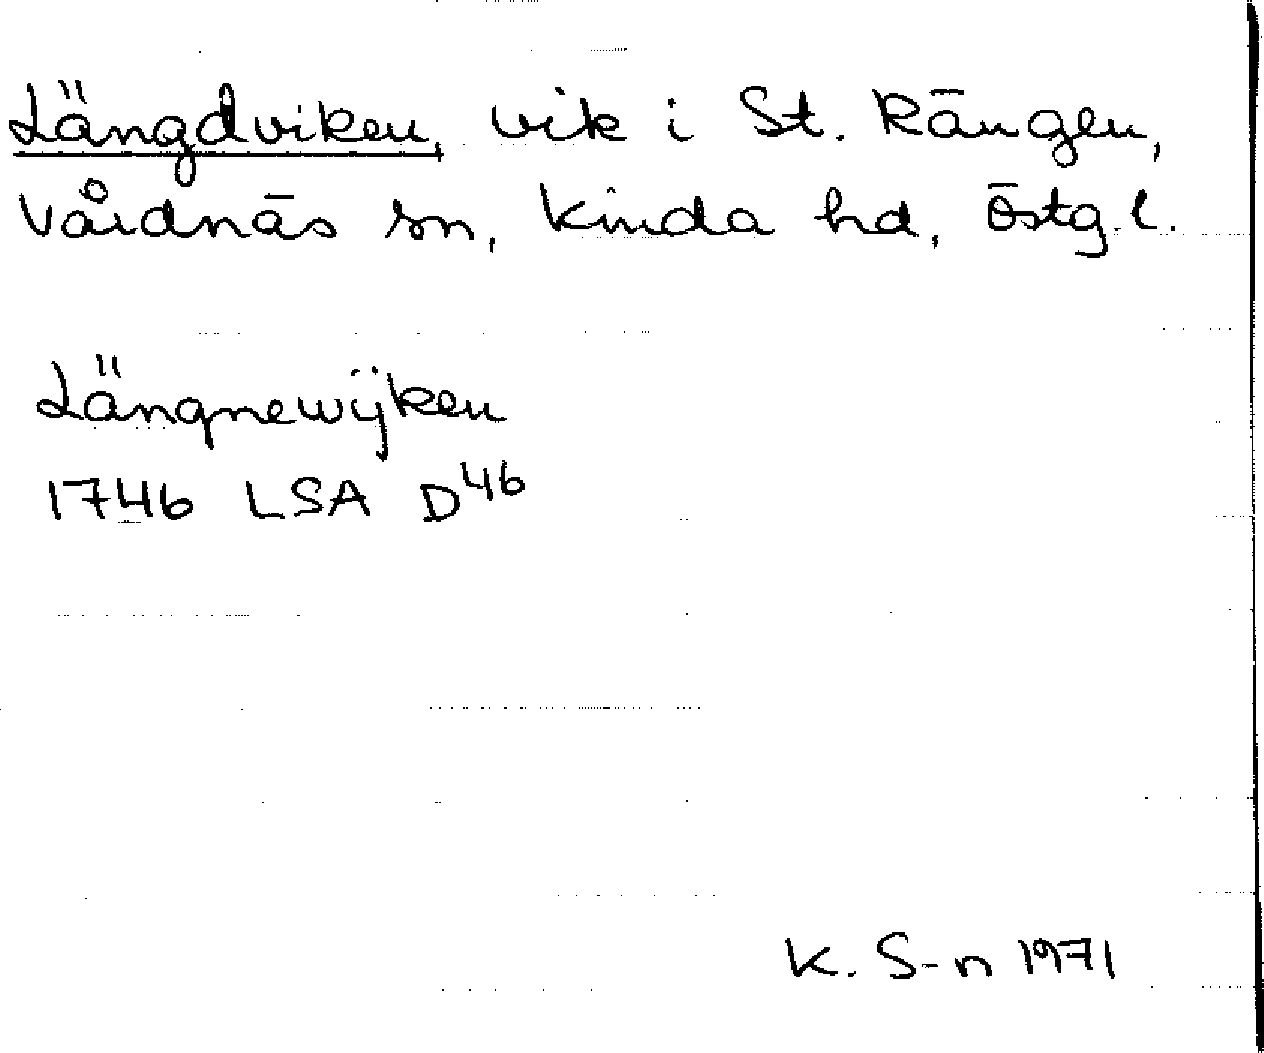 Längdviken, vik i St. Rängen,
Vårdnäs sn, Kinda hd, Östg.l.
Längnewijken
1746 LSA D46
K. S-n 1971